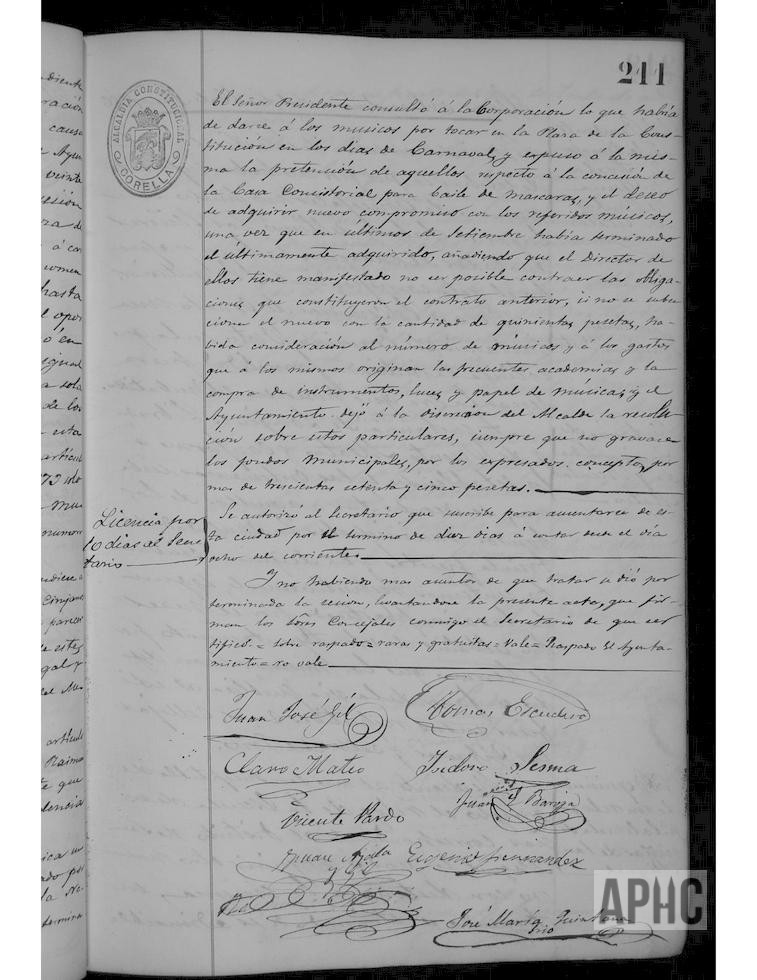 211
ALCALDIA CONSTITUCIONAL
CORELLA
El Señor Presidente consultó á la Corporación lo que había
de darse á los músicos por tocar en la Plaza de la Cons-
titución en los dias de Carnaval, y expuso á la mis-
ma la pretención de aquellos respecto á la concesión de
la Casa Consistorial para baile de mascaras, y el deseo
de adquirir nuevo compromiso con los referidos músicos,
una vez que en últimos de Setiembre habia terminado
el ultimamente adquirido, añadiendo que el Director de
ellos tiene manifestado no ser posible contraer las obliga-
ciones que constituyeron el contrato anterior, si no se subven-
ciona el nuevo con la cantidad de quinientas pesetas, ha-
bida consideración al número de músicos y á los gastos
que á los mismos originan las frecuentes academias y la
compra de instrumentos, luces y papel de música; y el
Ayuntamiento dejó á la discreción del Alcalde la resolu-
ción sobre estos particulares, siempre que no gravase
los fondos municipales, por los expresados conceptos, por
mas de trescientas setenta y cinco pesetas.
Licencia por
10 dias al Secre
tario
Se autorizó al Secretario que suscribe para ausentarse de es-
ta ciudad por el termino de diez dias á contar desde el dia
ocho del corriente.
Y no habiendo mas asuntos de que tratar se dió por
terminada la sesion, levantandose la presente acta, que fir-
man los Sres Concejales conmigo el Secretario de que cer
tifico = sobre raspado = raras y gratuitas = Vale = Raspado El Ayunta-
miento = no vale
Juan José Gil
Tomas Escudero
Claro Mateo
Isidoro Sesma
Juan Baroja
Vicente Pardo
Juan Ayala
Eugenio Fernandez
José María Quintana
Srio
APHC